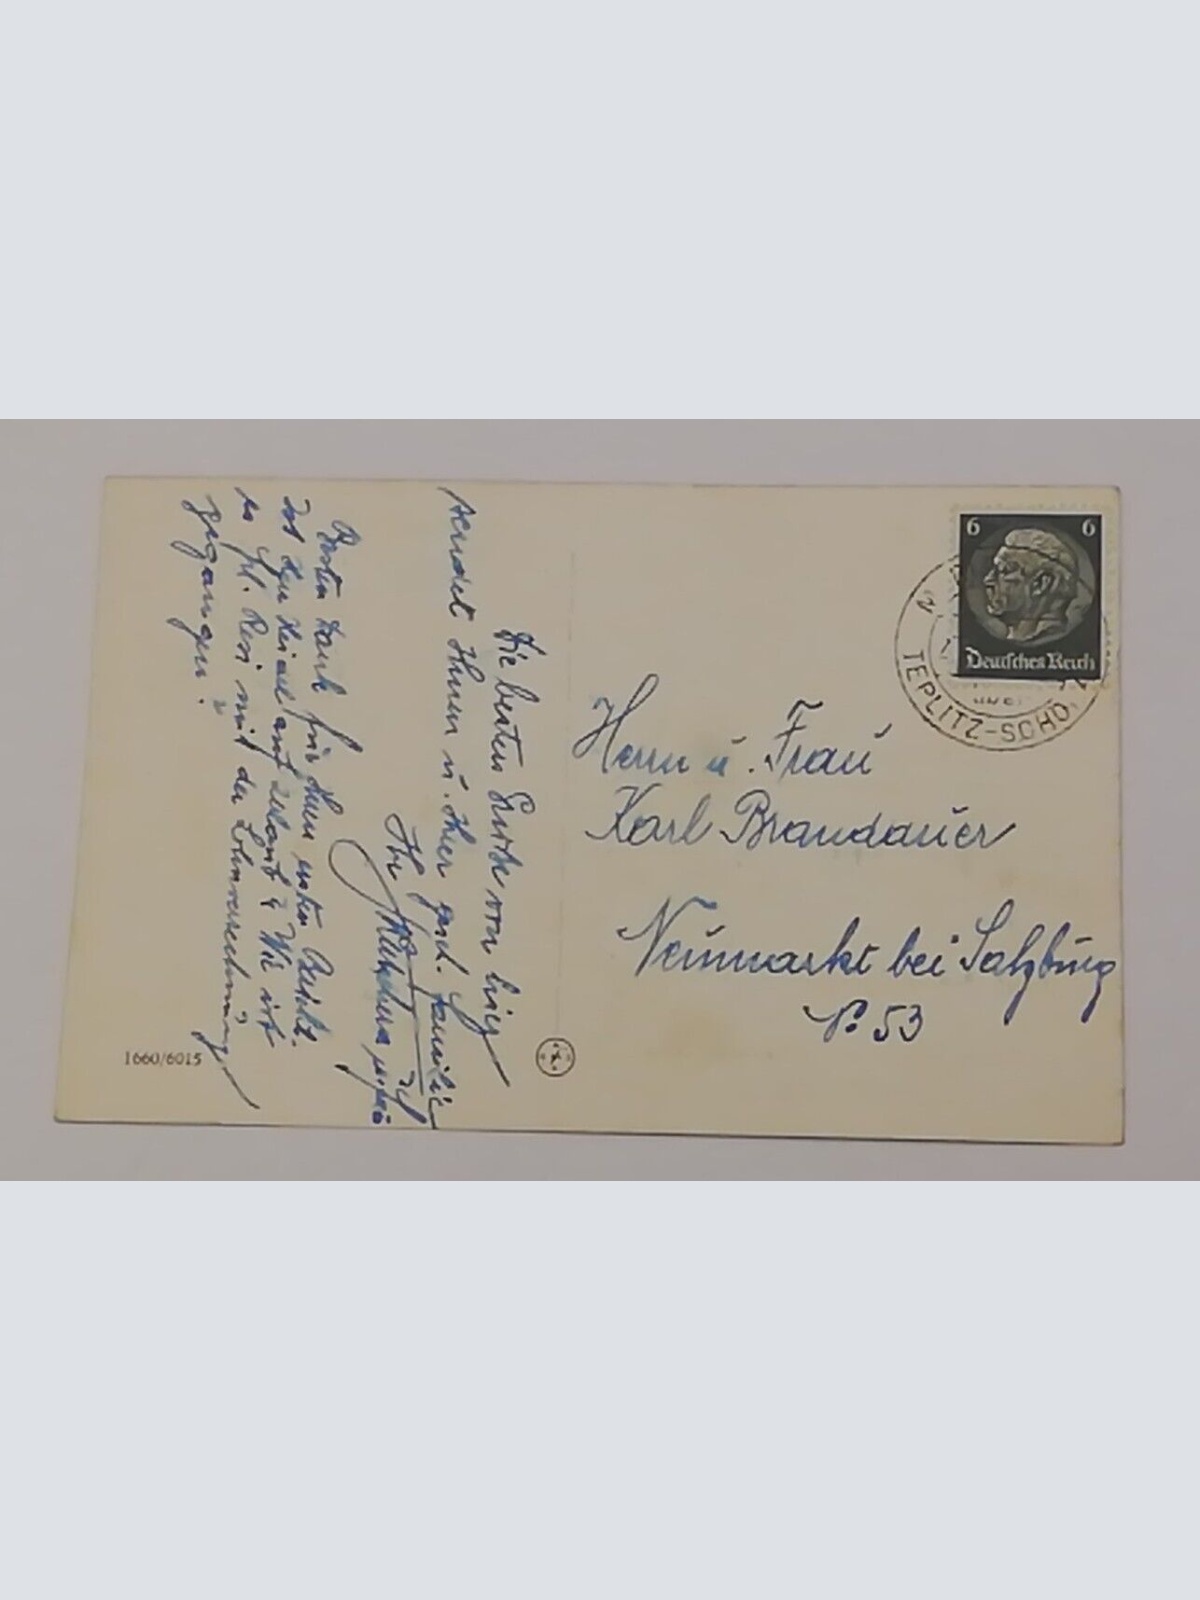 Die besten Grüße von hier
sendet Ihnen u. Ihrer gesch. Familie
Ihr
Besten Dank für Ihren ersten Bericht.
Ist Herr auf Urlaub? Wie ist
es Frl. Resi mit der Lohnverrechnung
gegangen?
1660/6015
6 6
Deutsches Reich
TEPLITZ-SCHÖ
Herrn u. Frau
Karl Brandauer
Neumarkt bei Salzburg
No. 53